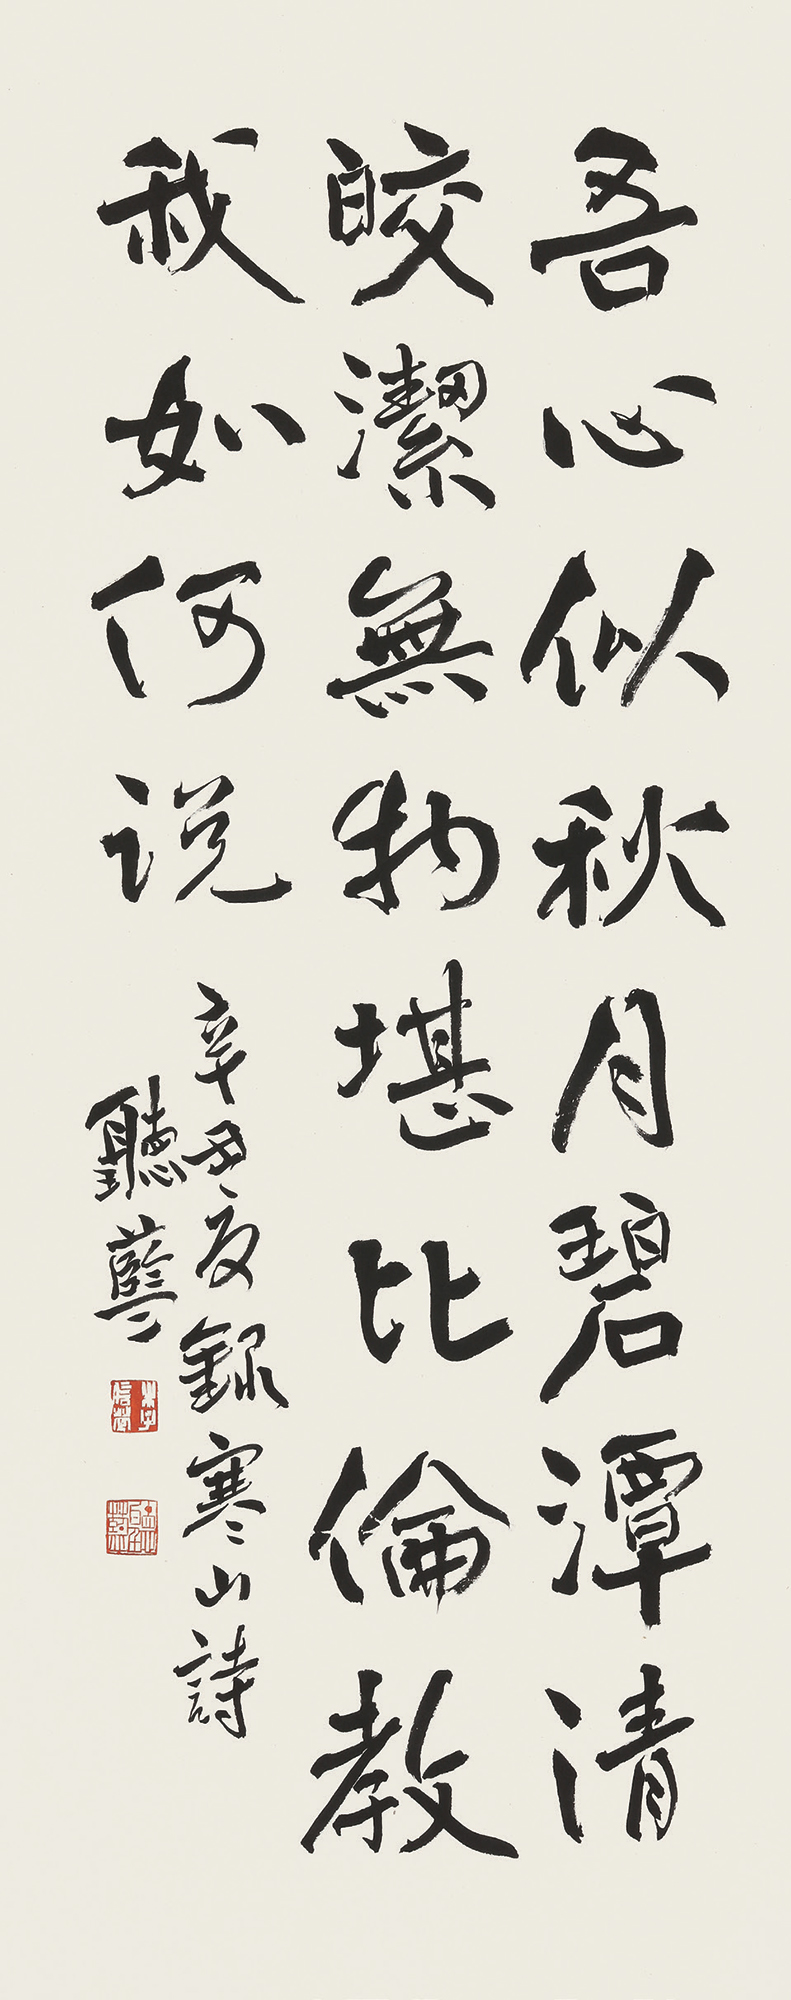 吾心似秋月碧潭清
皎潔無物堪比倫教
我如何说
辛丑夏録寒山詩
聽藍